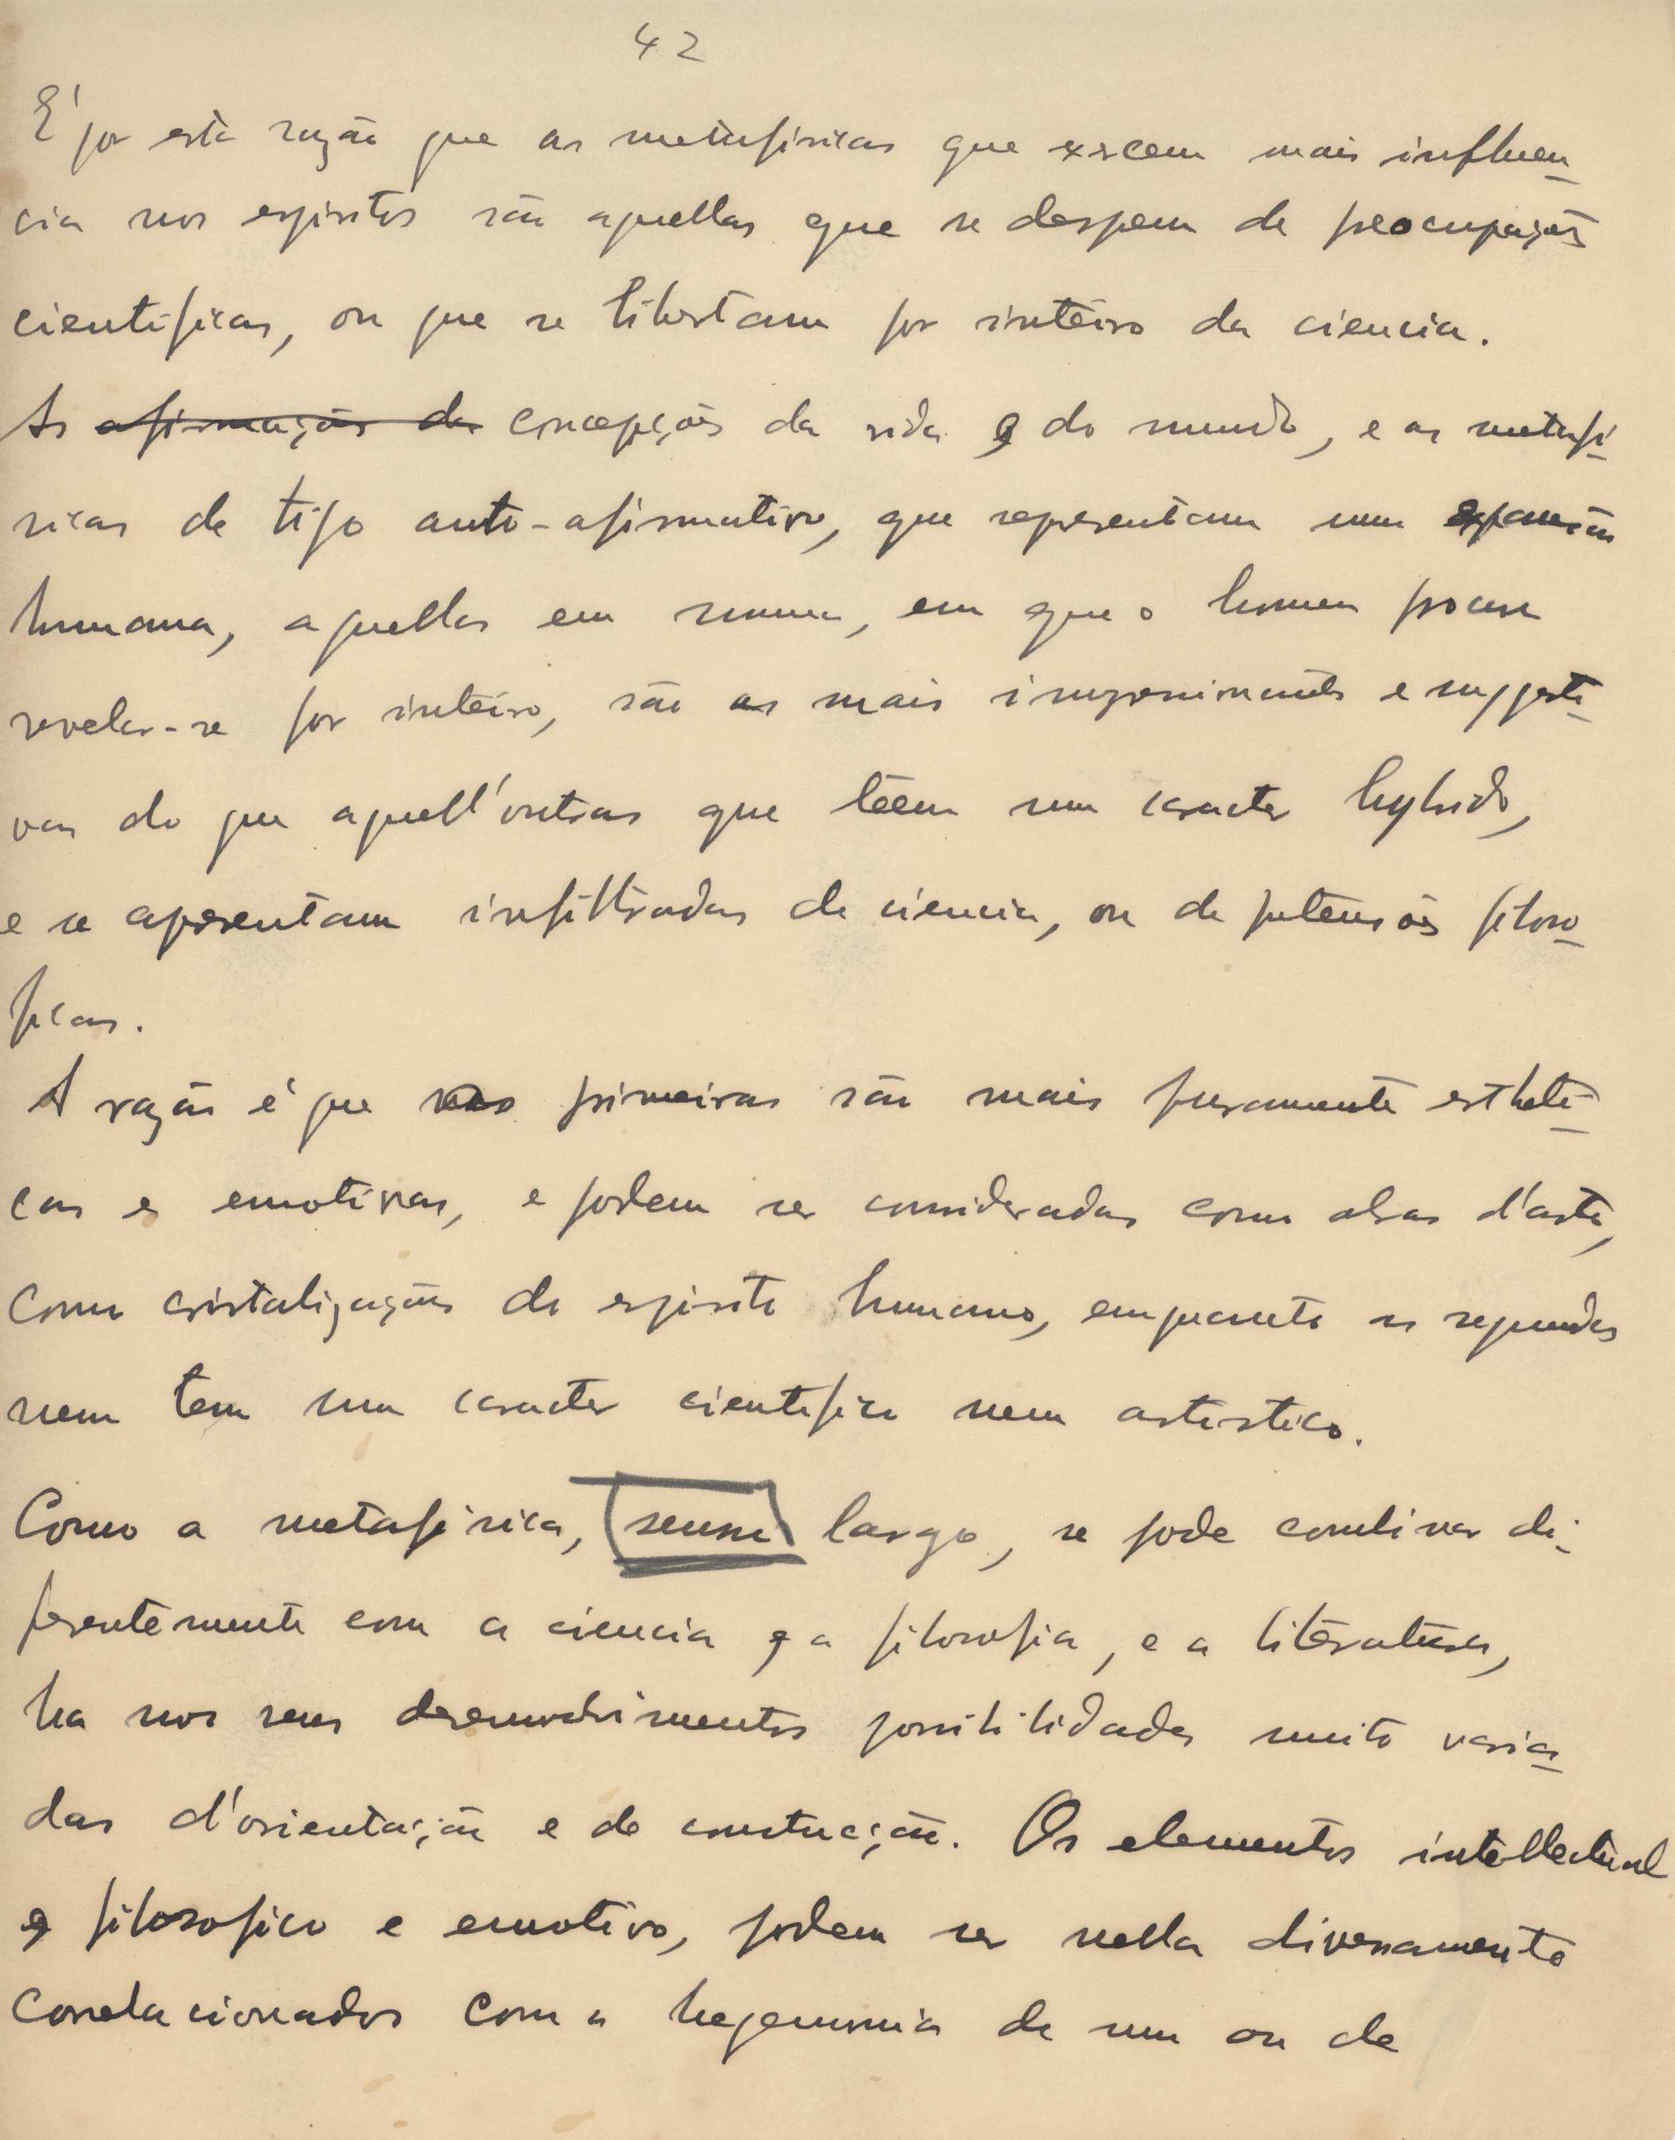 42
E' por esta razão que as metafisicas que excem mais influen-
cia nos espiritos são aquellas que se despem de preocupações
cientificas, ou que se libertam por inteiro da ciencia.
As afirmações das concepções da vida e do mundo, e as metafi-
sicas de tipo auto-afirmativo, que representam uma expansão
humana, aquellas em summa, em que o homem procura
revelar-se por inteiro, são as mais impressionantes e suggesti-
vas do que aquell'outras que têem um caracter hybrido,
e se apresentam infiltradas de ciencia, ou de pretensões filoso-
ficas.
A razão é que as primeiras são mais puramente estheti-
cas e emotivas, e podem ser consideradas como obras d'arte,
como cristalizações do espirito humano, emquanto as segundas
nem tem um caracter cientifico nem artistico.
Como a metafisica, sensu largo, se pode combinar di-
ferentemente com a ciencia e a filosofia, e a literatura,
ha nos seus desenvolvimentos possibilidades muito varia-
das d'orientação e de construcção. Os elementos intellectual
e filosofico e emotivo, podem ser nella diversamente
correlacionados com a hegemonia de um ou de